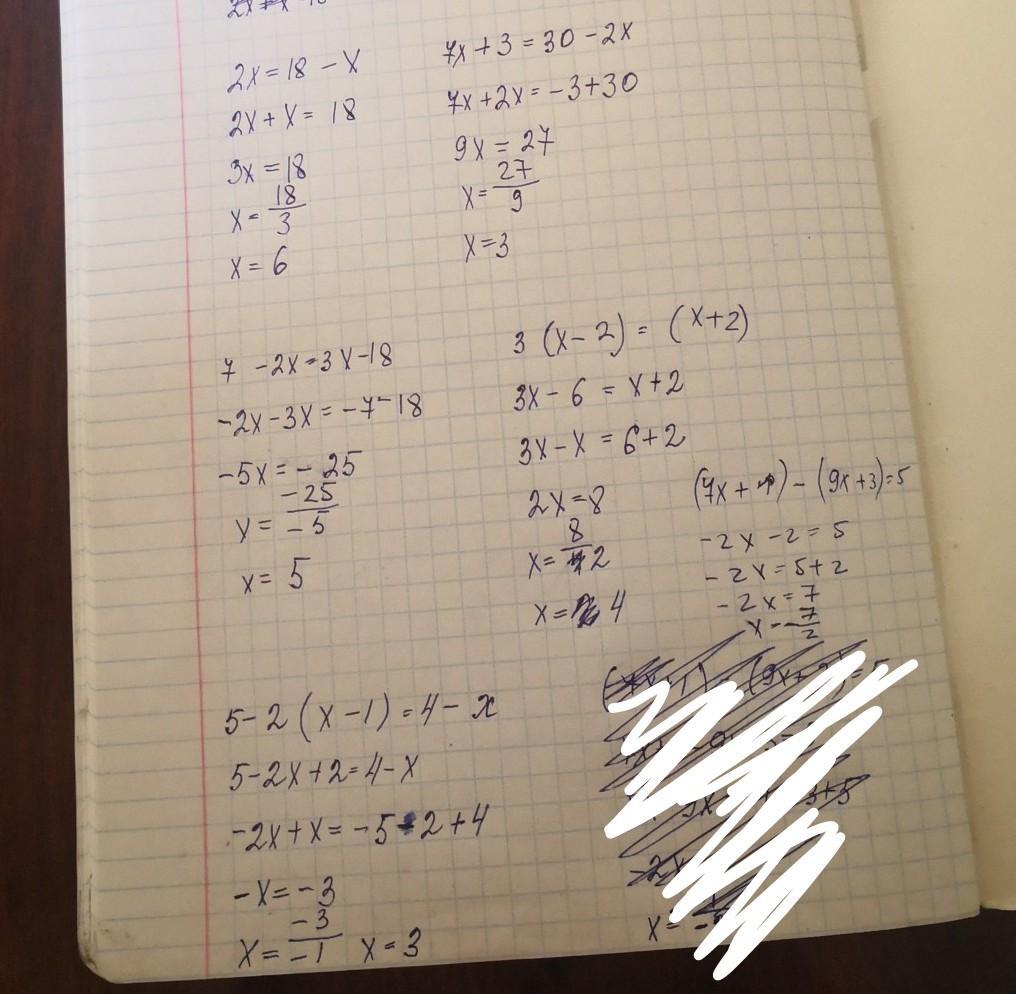 2x = 18 - x
2x + x = 18
3x = 18
x = 18/3
x = 6
7x + 3 = 30 - 2x
7x + 2x = -3 + 30
9x = 27
x = 27/9
x = 3
7 - 2x = 3x - 18
-2x - 3x = -7 - 18
-5x = -25
x = -25/-5
x = 5
3 (x - 2) = (x + 2)
3x - 6 = x + 2
3x - x = 6 + 2
2x = 8
x = 8/2
x = 4
(7x + 1) - (9x + 3) = 5
-2x - 2 = 5
-2x = 5 + 2
-2x = 7
x = -7/2
5 - 2 (x - 1) = 4 - x
5 - 2x + 2 = 4 - x
-2x + x = -5 - 2 + 4
-x = -3
x = -3/-1 x = 3